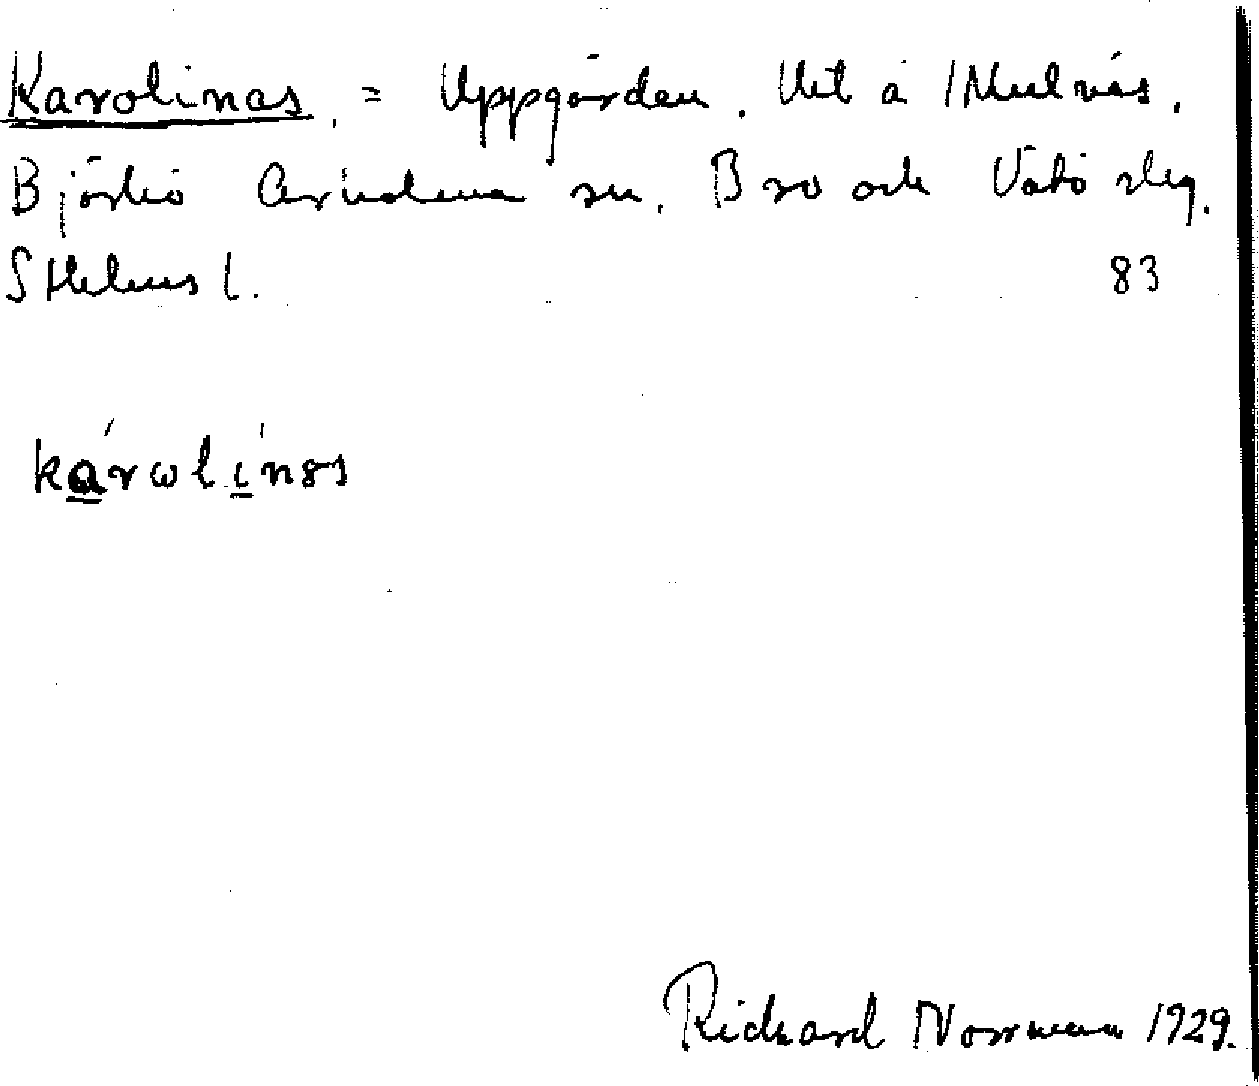 Karolinas = Uppgården. Utl å 1 Mul nås.
Björkö Arholma sn. Bro och Vätö slg.
SHelms l. 83
kárωlínəs
Rickard Norrman 1929.